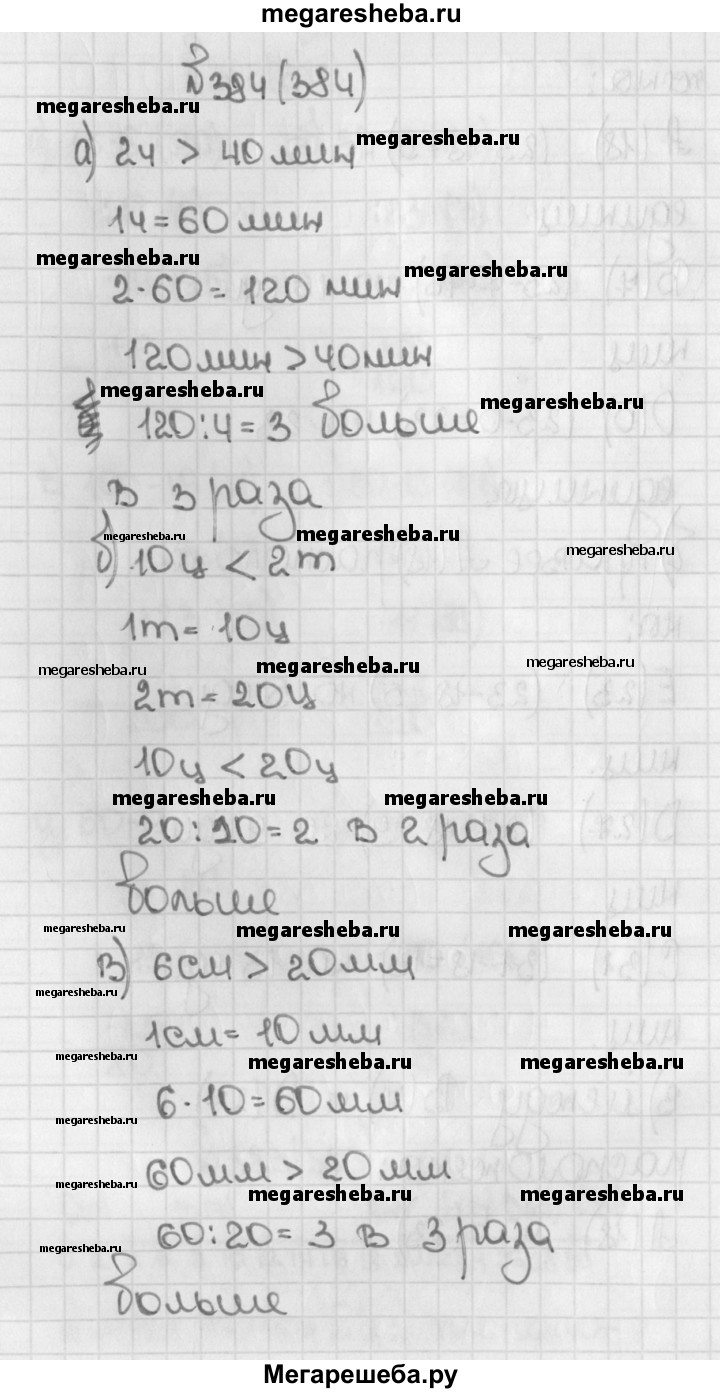 megaresheba.ru
№394(384)
megaresheba.ru
а) 2ч > 40мин
megaresheba.ru
1ч=60мин
megaresheba.ru
megaresheba.ru
2·60=120 мин
120мин>40мин
megaresheba.ru
megaresheba.ru
120:4=3 больше
в 3 раза
megaresheba.ru
megaresheba.ru
megaresheba.ru
б) 10ц < 2т
1т=10ц
megaresheba.ru
megaresheba.ru
megaresheba.ru
2т=20ц
10ц<20ц
megaresheba.ru
megaresheba.ru
20:10=2 в 2 раза
больше
megaresheba.ru
megaresheba.ru
megaresheba.ru
в) 6см>20мм
megaresheba.ru
1см=10мм
megaresheba.ru
megaresheba.ru
megaresheba.ru
6·10=60мм
megaresheba.ru
60мм>20мм
megaresheba.ru
megaresheba.ru
megaresheba.ru
60:20=3 в 3 раза
megaresheba.ru
больше
Мегарешеба.ру